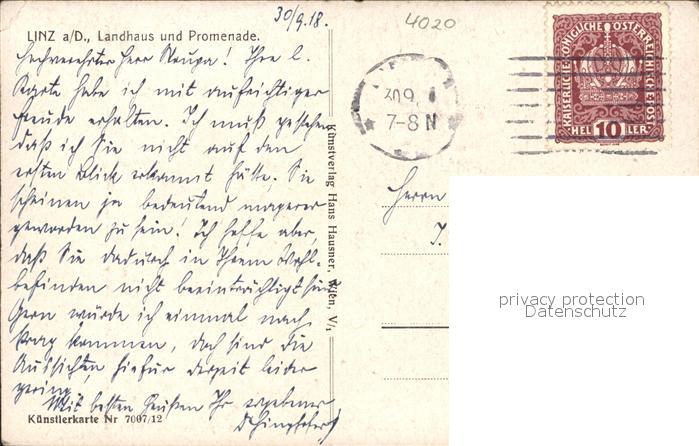 30/9.18.
4020
LINZ a/D., Landhaus und Promenade.
Hochverehrter Herr Neupa! Ihre l.
Karte habe ich mit aufrichtiger
Freude erhalten. Ich muß gestehen
daß ich Sie nicht auf den
ersten Blick erkannt hätte. Sie
scheinen ja bedeutend magerer
geworden zu sein. Ich hoffe aber,
daß Sie dadurch in Ihrem Wohl-
befinden nicht beeinträchtigt sind
Gern würde ich einmal nach
Prag kommen, doch sind die
Aussichten hiefür derzeit leider
gering.
Mit besten Grüßen Ihr ergebener
Künstlerkarte Nr 7007/12
Künstverlag Hans Hausner, Wien, V/1
30.9.
7-8 N
KAISERLICHE KÖNIGLICHE ÖSTERREICHISCHE POST
HELLER
10
Herrn
J.
privacy protection
Datenschutz